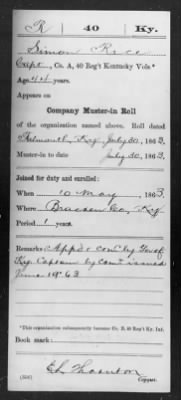 R | 40 | Ky.
Simon Rice
Capt., Co. A, 40 Reg't Kentucky Vols.*
Age 44 years.
Appears on
Company Muster-in Roll
of the organization named above. Roll dated
Falmouth, Ky., July 30, 1863.
Muster-in to date July 30, 1863.
Joined for duty and enrolled:
When 10 May, 1863.
Where Bracken Co., Ky.
Period 1 years.
Remarks: App'd & com'd by Gov of
Ky Captain by com issued
June 19" 63
*This organization subsequently became Co. B, 40 Reg't Ky. Inf.
Book mark:
Copyist.